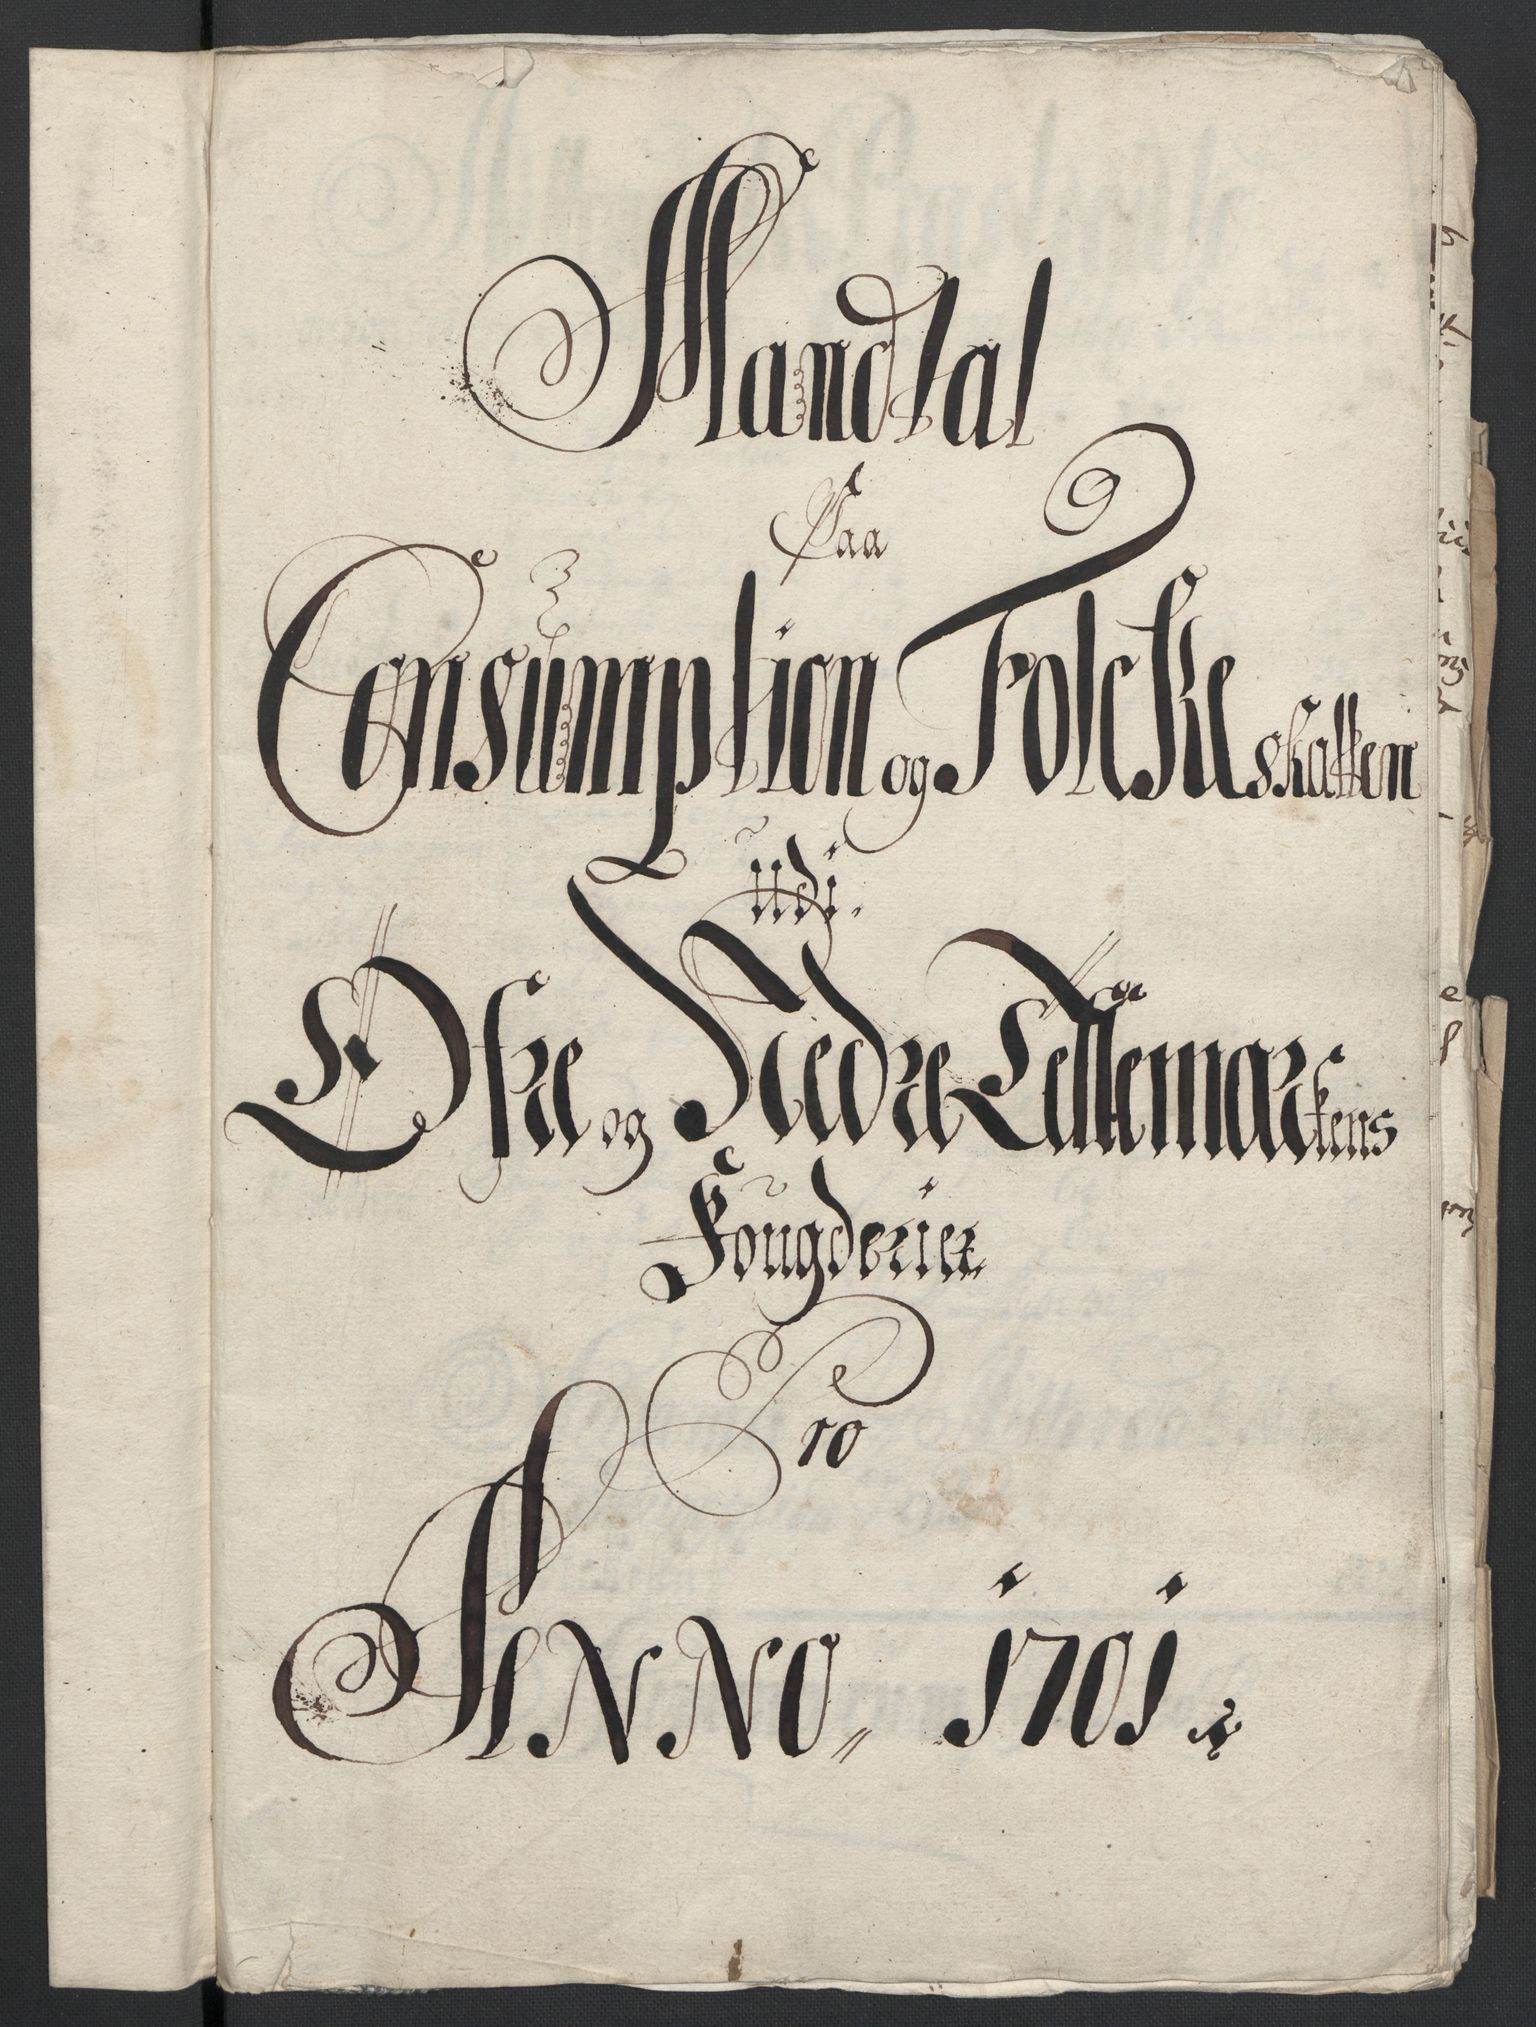 Mandtal
Paa
Consumption og Folckeskatten
udi.
Øfre og Nedre Tellemarckens
Fougderier
Pro
ANNO 1701.